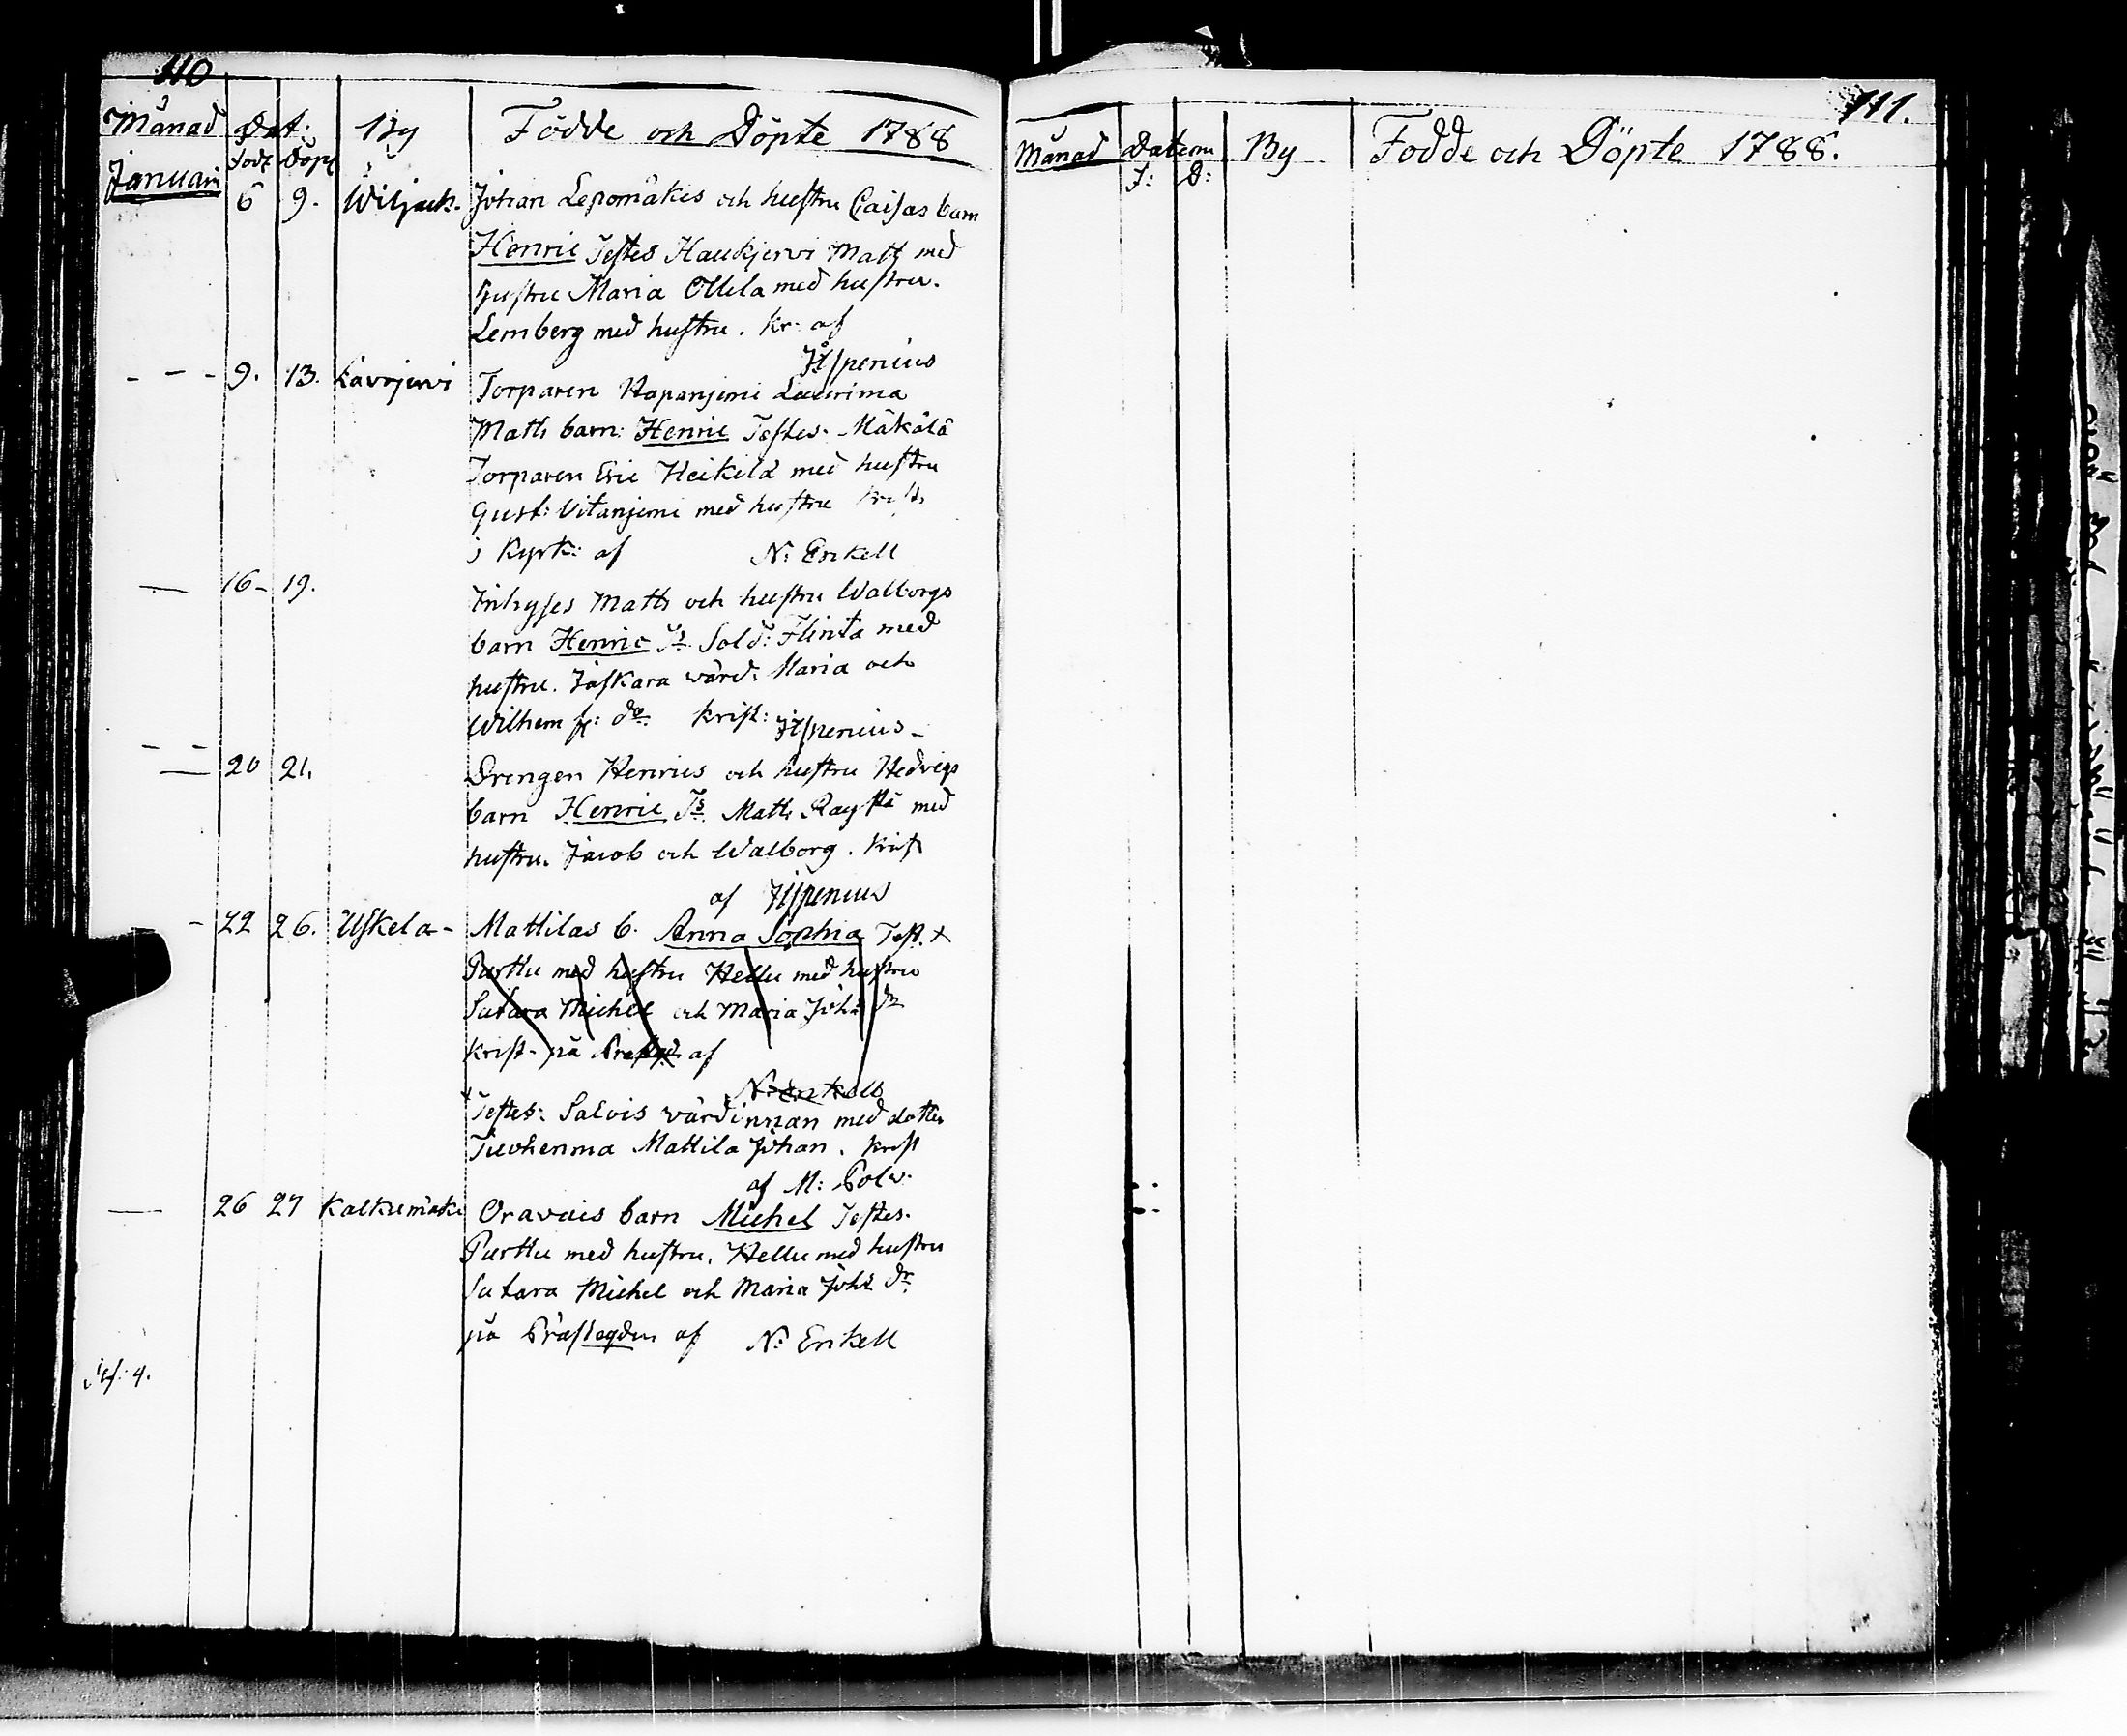 110
Månad Dat: By Födde och Döpte 1788
Januari Född Döpt
6 9. Wiljack. Johan Lepomäkis och hustru Caisas barn
Henric Testes Haukjervi Matts med
hustru Maria Ollila med hustru.
Lemberg med hustru. kr: af
Hispenius
- - - 9. 13. Kavojervi Torparen Hapanjemi
Matts barn: Henric Testes. Mäkälä
Torparen Eric Heikilä med hustru
Gust: Vitanjemi med hustru
i Kyrk: af N: Enkell
— 16 - 19. Inhyses Matts och hustru Walborgs
barn Henric Ts Sold: Flinta med
hustru. Jaskara värd: Maria och
Wilhem dr. krist: Hispenius -
— 20 21. Drengen Henrics och hustru Hedvigs
barn Henric Ts. Matts med
hustru. Jacob och Walborg. krist
af Hispenius
- 22 26. Uskela - Mattilas b. Anna Sophia Test. +
Purttu med hustru Hellu med hustru
Sutara Michel och Maria Johs dr
krist - på af
N: Enkell
+ Testes: Salvis värdinnan med dotter
Mattila Johan. krist
af M: Polv.
— 26 27 Kalkumäki Oravais barn Michel Testes.
Purttu med hustru. Hellu med hustru
Sutara Michel och Maria Johs dr
på Prästegden af N: Enkell
111.
Månad Datum By Födde och Döpte 1788.
F: D: